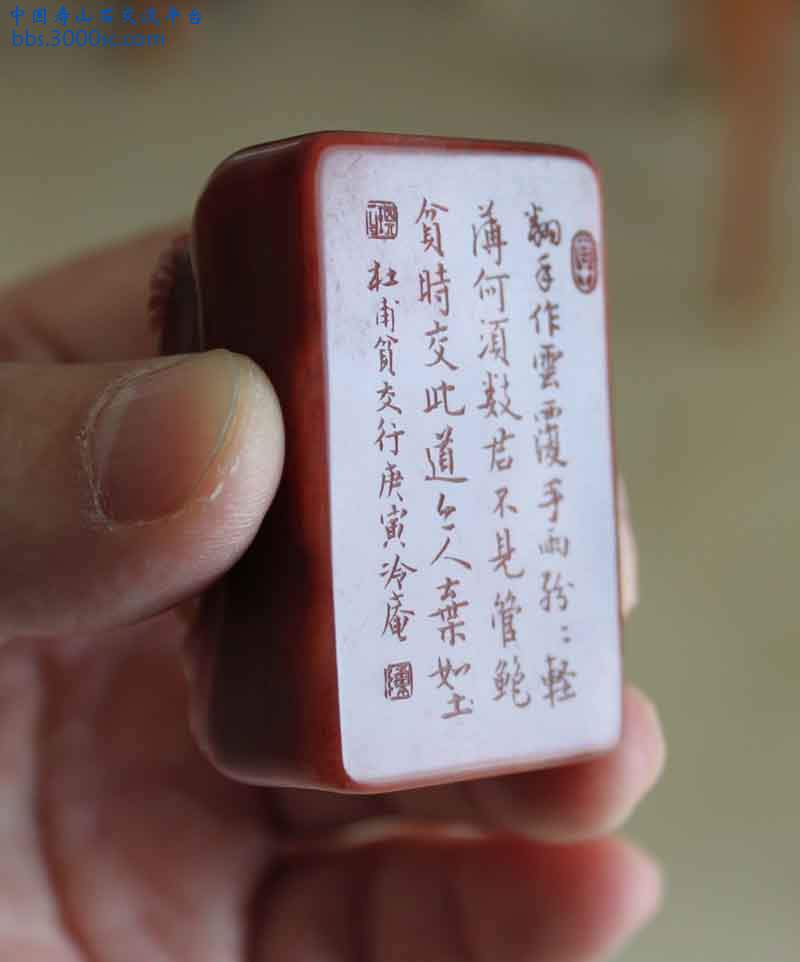 中国寿山石交流平台
bbs.3000ic.com
翻手作雲覆手雨紛〻軽
薄何須数君不見管鮑
貧時交此道今人棄如土
杜甫貧交行庚寅冷庵